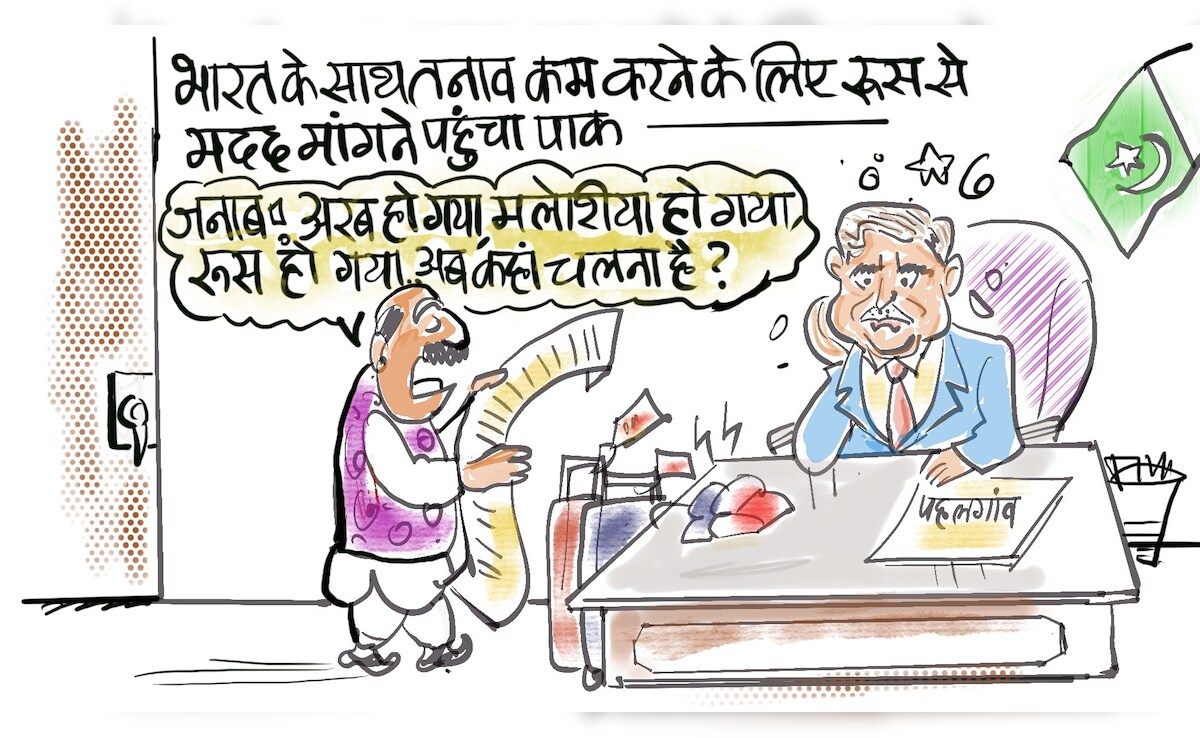 भारत के साथ तनाव कम करने के लिए रूस से
मदद मांगने पहुंचा पाक
जनाब!! अरब हो गया, मलेशिया हो गया,
रूस हो गया. अब कहां चलना है?
पहलगांव